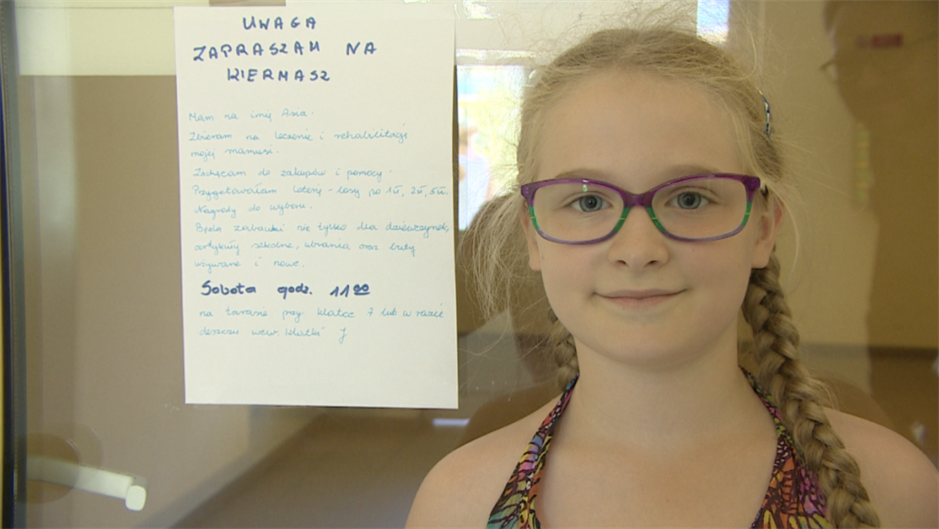 UWAGA
ZAPRASZAM NA
KIERMASZ
Mam na imię Asia.
Zbieram na leczenie i rehabilitacji
mojej mamusi.
Zachęcam do zakupów i pomocy.
Przygotowałam loterię - losy po 1zł, 2zł, 5zł.
Nagrody do wyboru.
Będą zabawki nie tylko dla dziewczynek,
artykuły szkolne, ubrania oraz buty
używane i nowe.
Sobota godz. 11 00
na tarasie przy klatce 7 lub w razie
deszczu wew. klatki